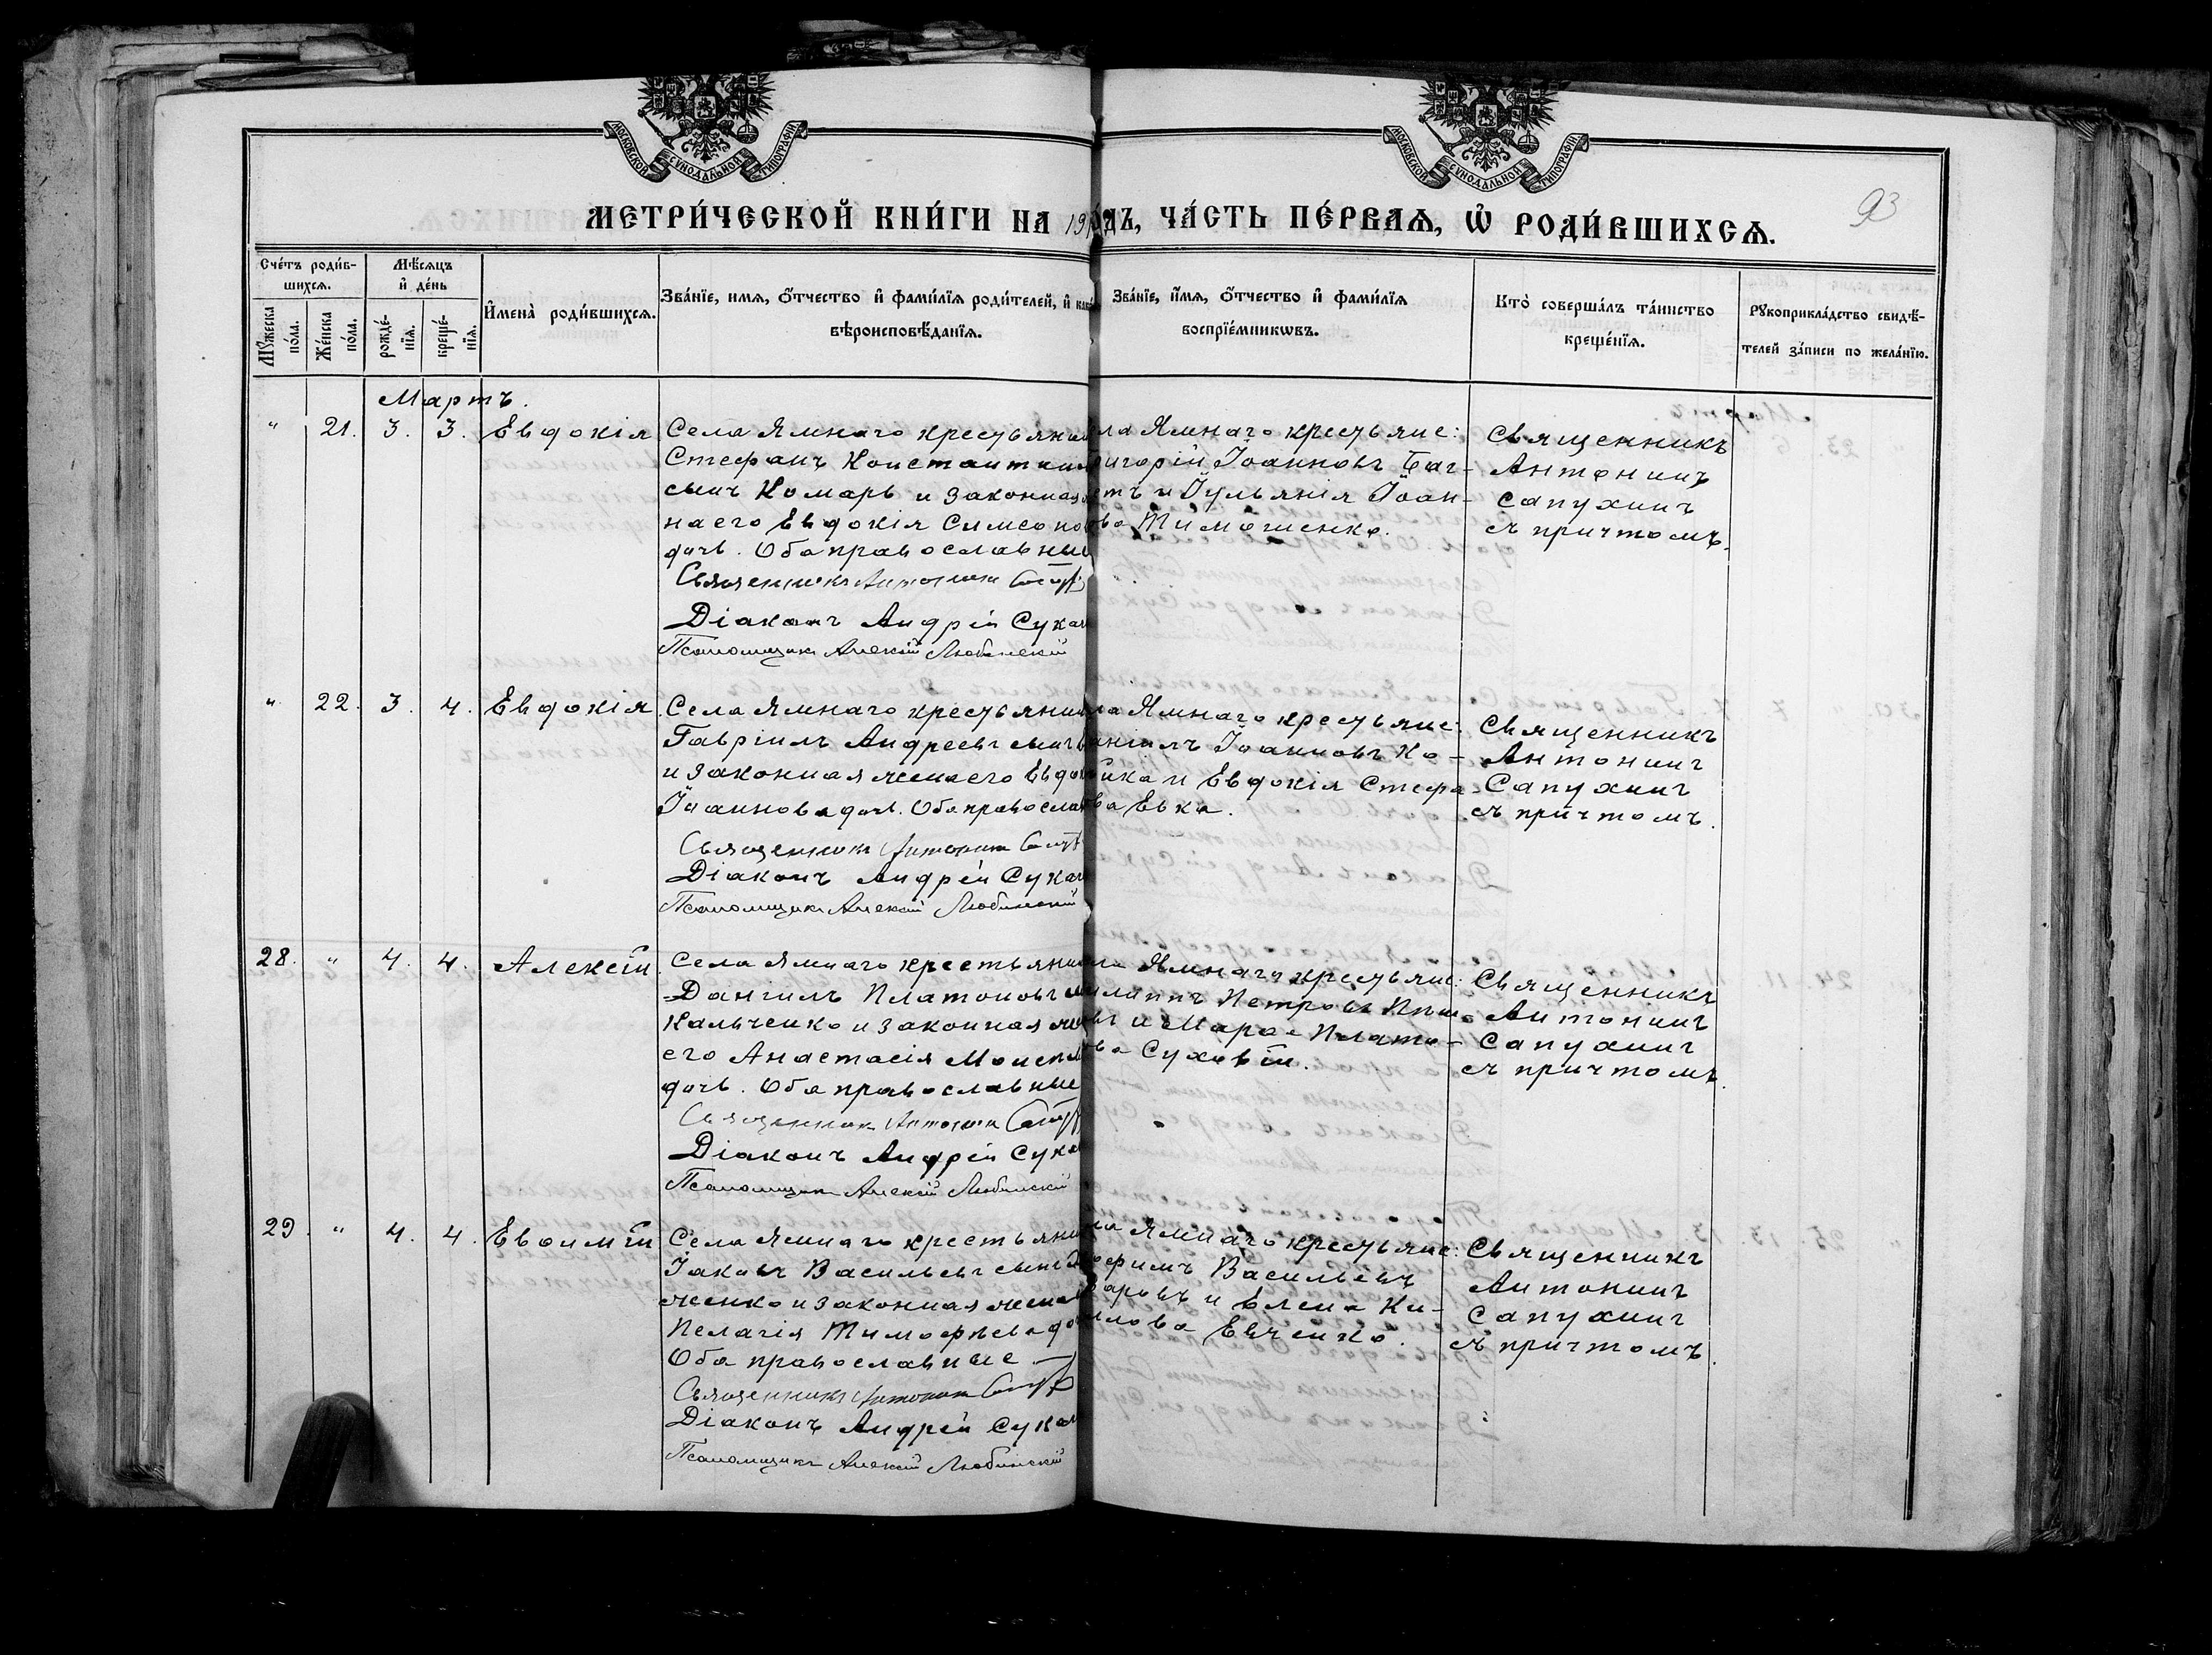 МОСКОВСКОЙ СѴНОДАЛЬНОЙ ТИПОГРАФІИ
МОСКОВСКОЙ СѴНОДАЛЬНОЙ ТИПОГРАФІИ
93
МЕТРИ́ЧЕСКОЙ КНИ́ГИ НА 19 ГО́ДЪ, ЧА́СТЬ ПЕ́РВАѦ, Ѡ҆ РОДИ́ВШИХСѦ.
Сче́тъ роди́в-
шихсѧ.
Мꙋ́жеска по́ла.
Же́нска по́ла.
Мѣ́сѧцъ
и҆ де́нь
рожде́-
нїѧ.
креще́-
нїѧ.
И҆мена̀ роди́вшихсѧ.
Зва́нїе, имѧ, ѻ҆́тчество и҆ фами́лїѧ роди́телей, и҆
вѣроисповѣ́данїѧ.
Зва́нїе, и҆́мѧ, ѻ҆́тчество и҆ фами́лїѧ
воспрїе́мникѡвъ.
Кто̀ соверша́лъ та́инство
креще́нїѧ.
Рꙋкоприкла́дство свидѣ́-
телей за́писи по жела́нїю.
Мартъ.
" 21. 3. 3. Евдокія
Села Ямнаго крестьянин
Стефанъ Константин
сынъ Комарь и законная
на его Евдокія Симеоно
дочь. Оба православные
Священникъ Антонин
Діаконъ Андрей Сука
Псаломщикъ Алексій Любинскій
ла Ямнаго крестьяне:
ригорій Іоанновъ Баг-
етъ и Іульянія Іоан-
ова Тимошенко.
Священникъ
Антонинъ
Сапухинъ
съ причтомъ.
" 22. 3. 4. Евдокія.
Села Ямнаго крестьянин
Гавріилъ Андреевъ сынъ
и законная жена его Евдок
Іоаннова дочь. Оба православ
Священникъ Антонин
Діаконъ Андрей Сука
Псаломщикъ Алексій Любинскій
ла Ямнаго крестьяне:
аніилъ Іоанновъ Ко-
ика и Евдокія Стефа-
ва Евка.
Священникъ
Антонинъ
Сапухинъ
съ причтомъ.
28. " 4. 4. Алексій.
Села Ямнаго крестьянин
Даніилъ Платоновъ
Кальченко и законная
его Анастасія Моисе
дочь. Оба православные
Священник Антонин
Діаконъ Андрей Сука
Псаломщикъ Алексій Любинскій
ла Ямнаго крестьяне:
илиппъ Петровъ
и Марѳа Плато-
ова Суховій.
Священникъ
Антонинъ
Сапухинъ
съ причтомъ.
29. " 4. 4. Евѳимій
Села Ямнаго крестьянин
Іаковъ Васильевъ сынъ
женко и законная жена
Пелагія Тимофѣева до
Оба православные
Священникъ Антонин
Діаконъ Андрей Сука
Псаломщикъ Алексій Любинскій
ла Ямнаго крестьяне:
офимъ Васильевъ
и Елена Ки-
ллова Евченко.
Священникъ
Антонинъ
Сапухинъ
съ причтомъ.